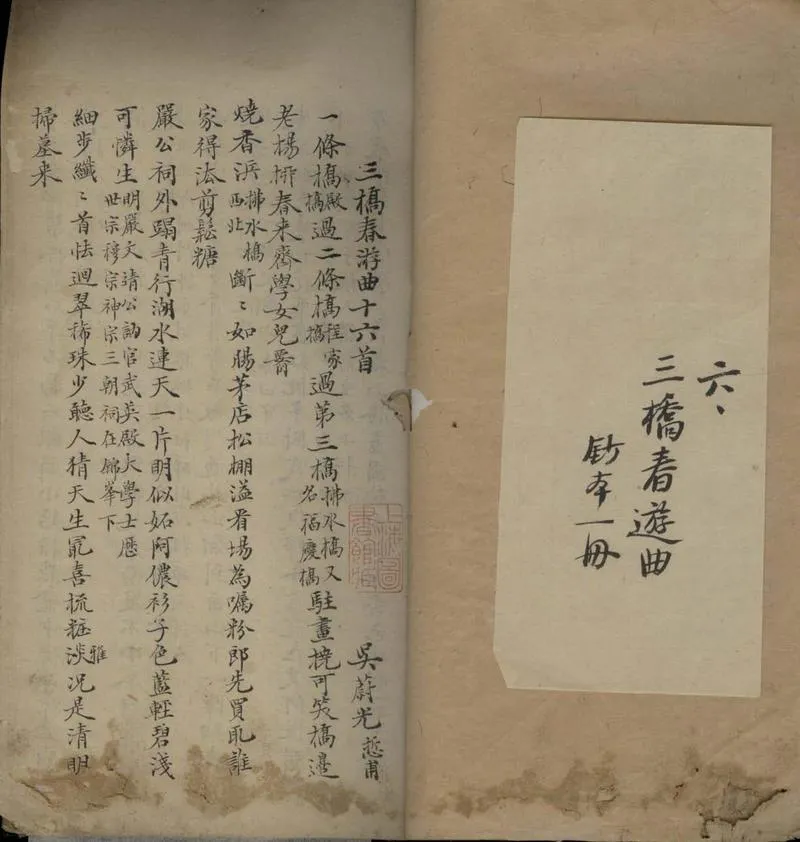 六、
三橋春遊曲
鈔本一冊
三橋春游曲十六首
吳蔚光悊甫
一條橋殿橋過二條橋程家橋過第三橋拂水橋又名福慶橋駐畫橈可笑橋邉
老楊柳春来齋學女兒
燒香浜拂水橋西北斷〻如腸茅店松棚溢看場為嘱粉郎先買取誰
家得法剪鬆糖
嚴公祠外蹋青行湖水連天一片明似妬阿儂衫子色藍輕碧淺
可憐生明嚴文清公訥官武英殿大學士歷世宗穆宗神宗三朝祠在錦峯下
細步纖〻首怯迴翠稀珠少聽人猜天生雅喜梳粧淡况是清明
掃墓来
上海圖書館藏